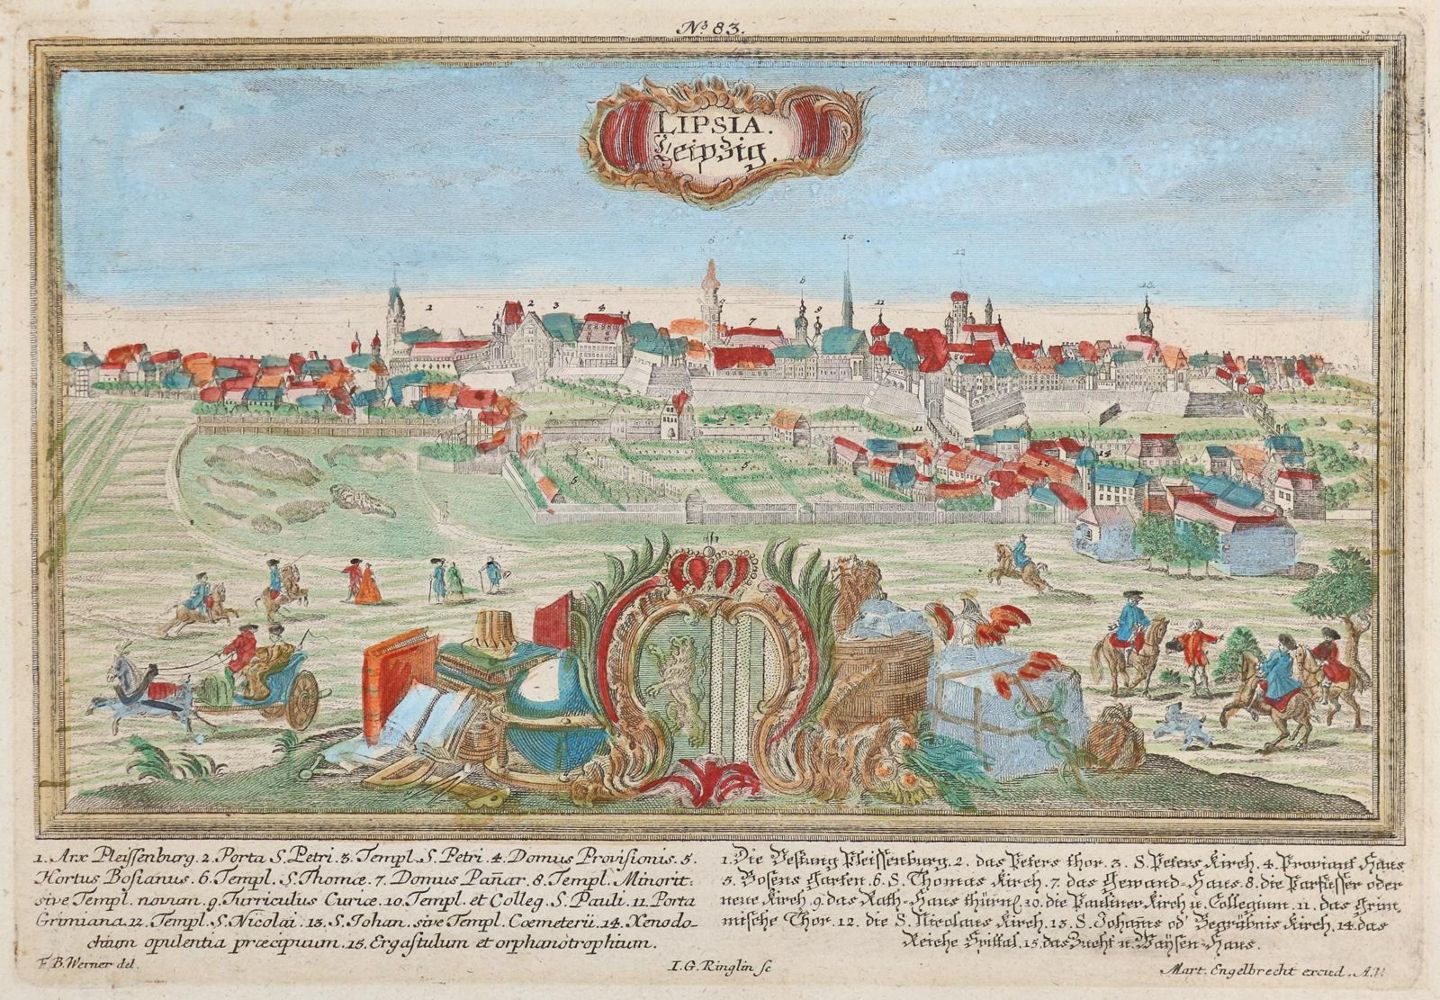 No. 83.
LIPSIA.
Leipzig.
1. Arx Pleissenburg. 2. Porta S. Petri. 3. Templ. S. Petri. 4. Domus Provisionis. 5.
Hortus Bosianus. 6. Templ. S. Thomæ. 7. Domus Pañar. 8. Templ. Minorit:
sive Templ. novum. 9. Turriculus Curiæ. 10. Templ. et Colleg. S. Pauli. 11. Porta
Grimiana. 12. Templ. S. Nicolai. 13. S. Johan. sive Templ. Cœmeterii. 14. Xenodo-
chium opulentia præcipuum. 15. Ergastulum et orphanotrophium.
1. Die Vestung Pleissenburg. 2. das Peters thor. 3. S. Peters Kirch. 4. Proviant Haus
5. Bosens Garten. 6. S. Thomas Kirch. 7. das Gewand-Haus. 8. die Parfusser oder
neue Kirch. 9. das Rath-Haus thürnl. 10. die Pauliner Kirch u. Collegium. 11. das Grim-
mische Thor. 12. die S. Nicolaus Kirch. 13. S. Johañs od' Begräbnis Kirch. 14. das
Reiche Spittal. 15. das Zucht u. Waÿsen-Haus.
F. B. Werner del.
I. G. Ringlin sc
Mart. Engelbrecht excud. A.V.